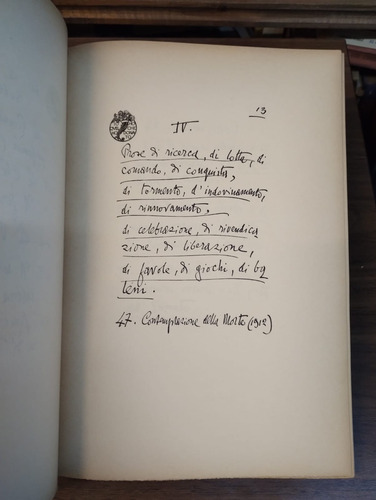 13
IV.
Prose di ricerca, di lotta, di
comando, di conquista,
di tormento, d'indovinamento,
di rinnovamento,
di celebrazione, di rivendica
zione, di liberazione,
di favole, di giochi, di ba
leni.
47. Contemplazione della Morte (1912)